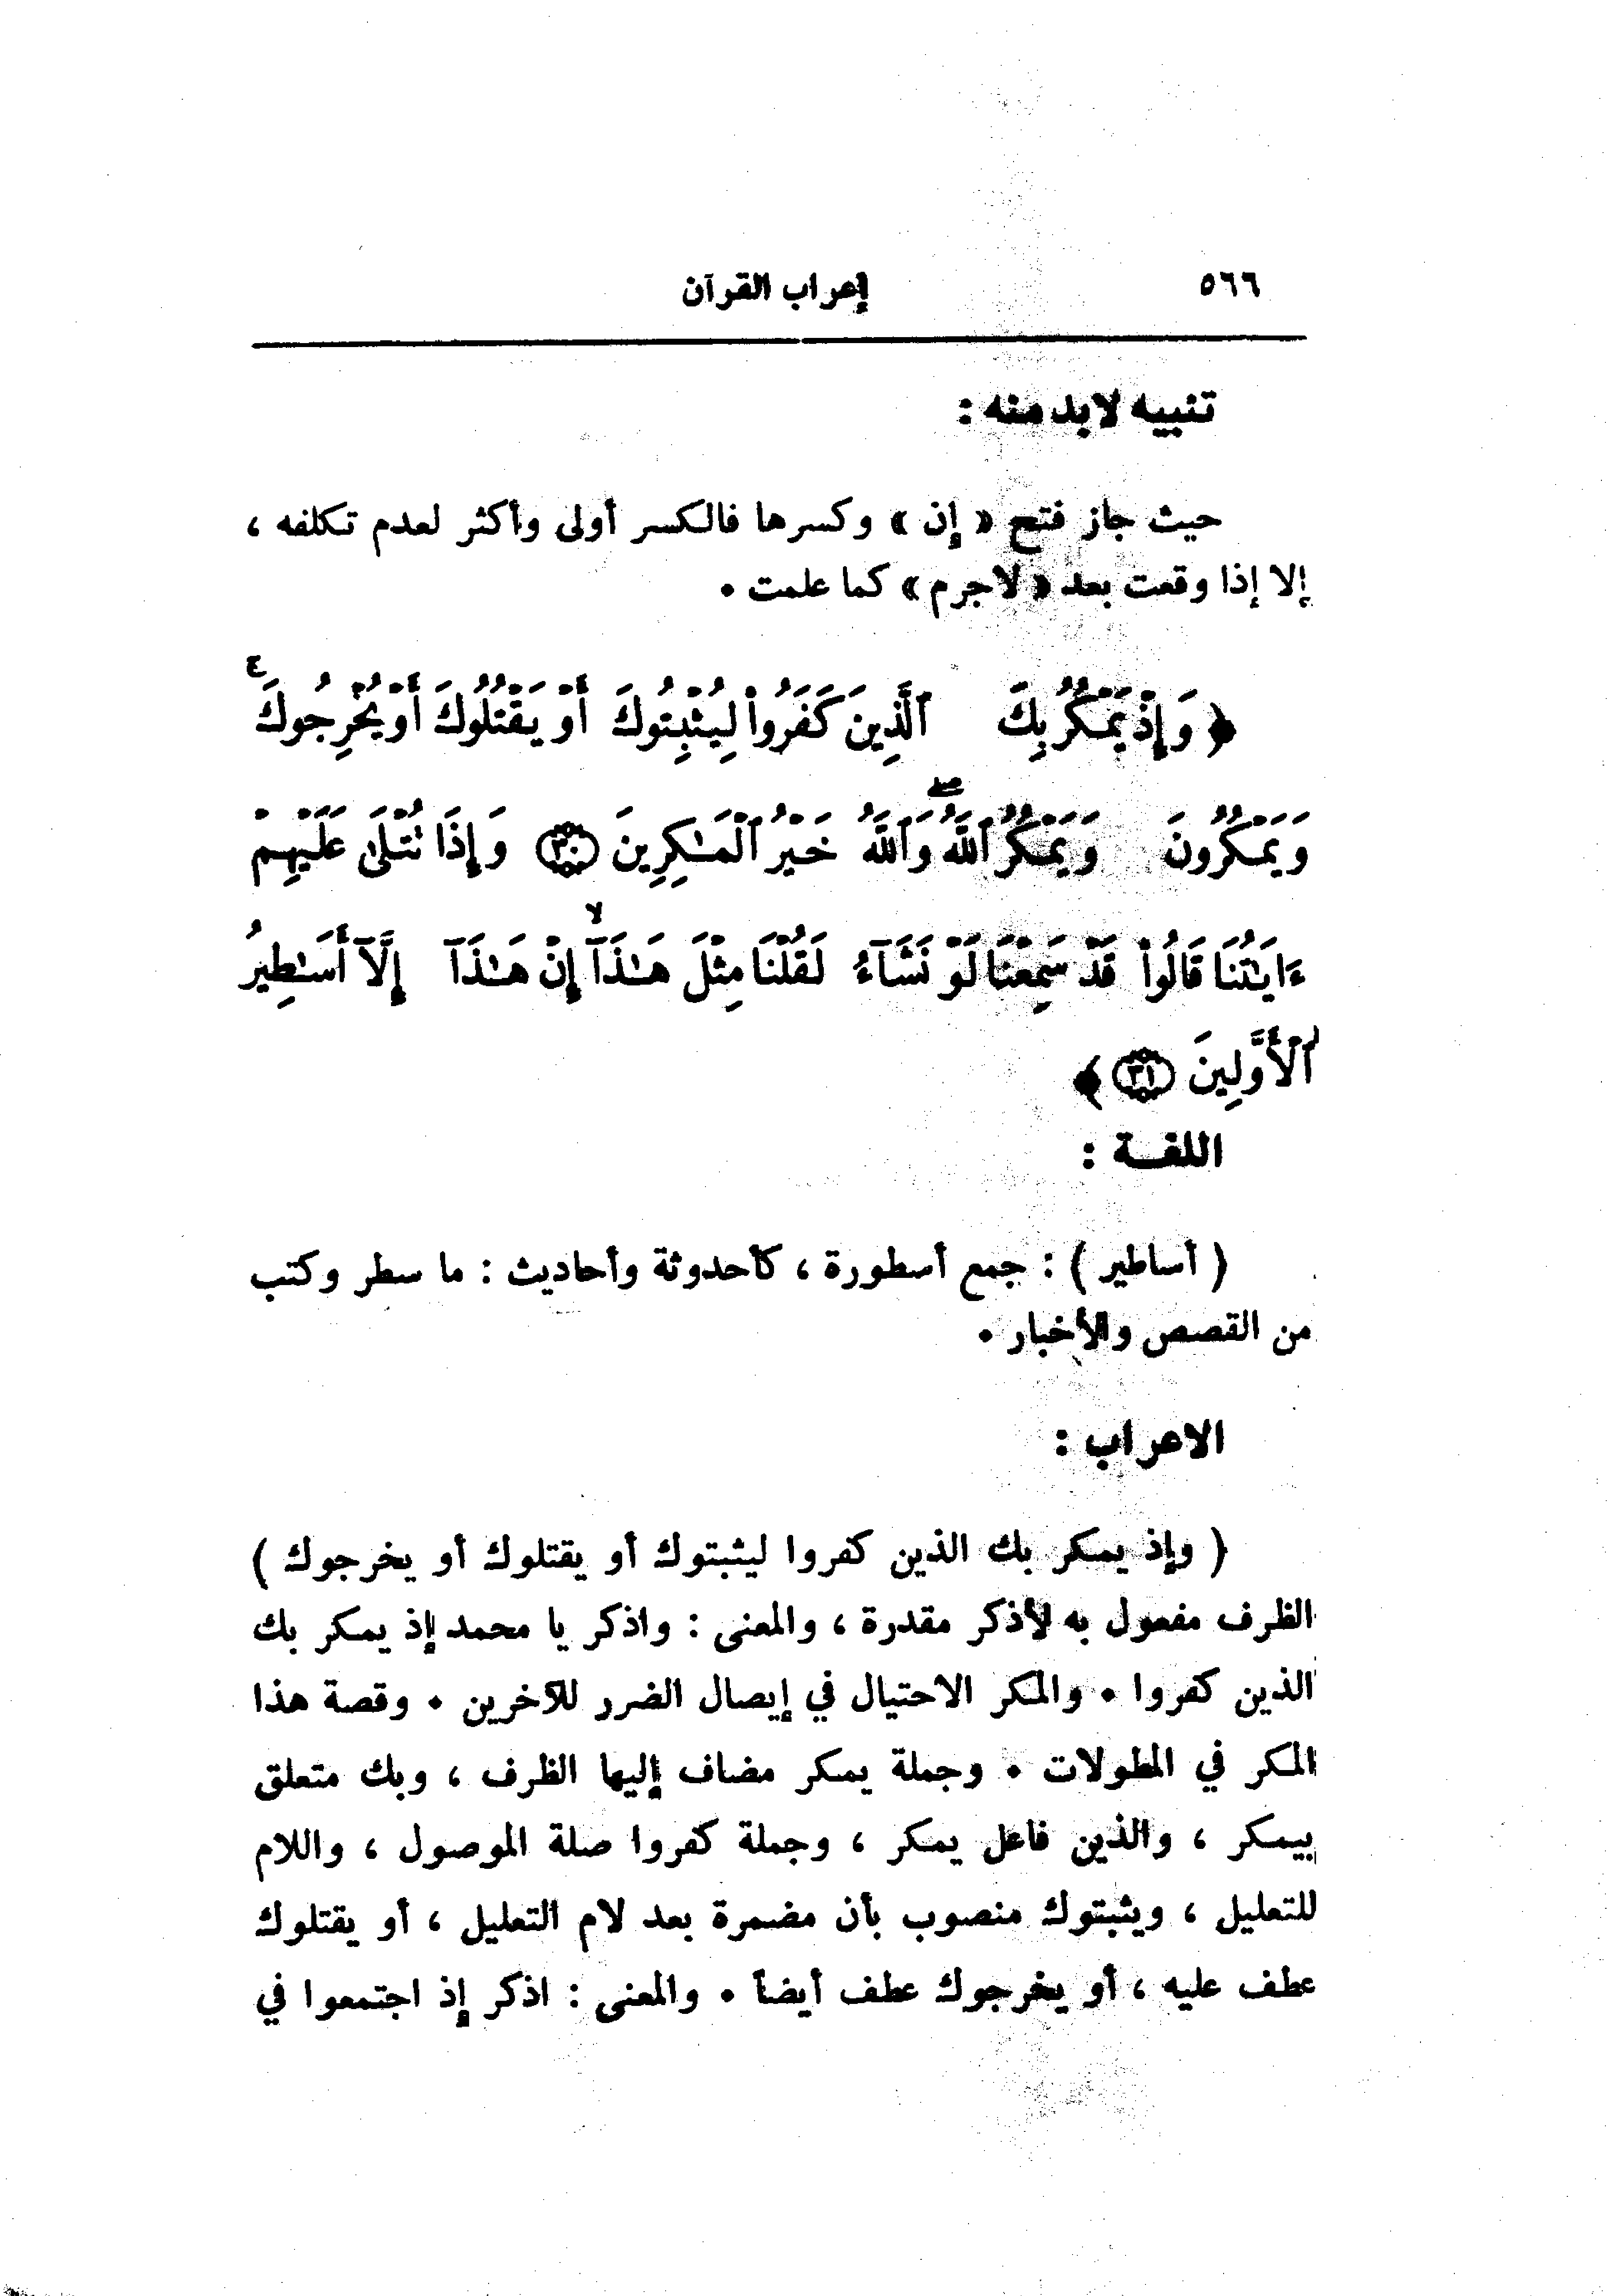 ٥٦٦ إعراب القرآن
تنبيه لابد منه :
حيث جاز فتح « إن » وكسرها فالكسر أولى وأكثر لعدم تكلفه ،
إلا إذا وقعت بعد « لاجرم » كما علمت .
﴿ وَإِذْ يَمْكُرُ بِكَ ٱلَّذِينَ كَفَرُوا۟ لِيُثْبِتُوكَ أَوْ يَقْتُلُوكَ أَوْ يُخْرِجُوكَ ۚ
وَيَمْكُرُونَ وَيَمْكُرُ ٱللَّهُ ۖ وَٱللَّهُ خَيْرُ ٱلْمَـٰكِرِينَ ٣٠ وَإِذَا تُتْلَىٰ عَلَيْهِمْ
ءَايَـٰتُنَا قَالُوا۟ قَدْ سَمِعْنَا لَوْ نَشَآءُ لَقُلْنَا مِثْلَ هَـٰذَآ ۙ إِنْ هَـٰذَآ إِلَّآ أَسَـٰطِيرُ
ٱلْأَوَّلِينَ ٣١ ﴾
اللغـة :
( أساطير ) : جمع أسطورة ، كأحدوثة وأحاديث : ما سطر وكتب
من القصص والأخبار .
الاعراب :
( وإذ يمكر بك الذين كفروا ليثبتوك أو يقتلوك أو يخرجوك )
الظرف مفعول به لأذكر مقدرة ، والمعنى : واذكر يا محمد إذ يمكر بك
الذين كفروا . والمكر الاحتيال في إيصال الضرر للآخرين . وقصة هذا
المكر في المطولات . وجملة يمكر مضاف إليها الظرف ، وبك متعلق
بيمكر ، والذين فاعل يمكر ، وجملة كفروا صلة الموصول ، واللام
للتعليل ، ويثبتوك منصوب بأن مضمرة بعد لام التعليل ، أو يقتلوك
عطف عليه ، أو يخرجوك عطف أيضاً . والمعنى : اذكر إذ اجتمعوا في